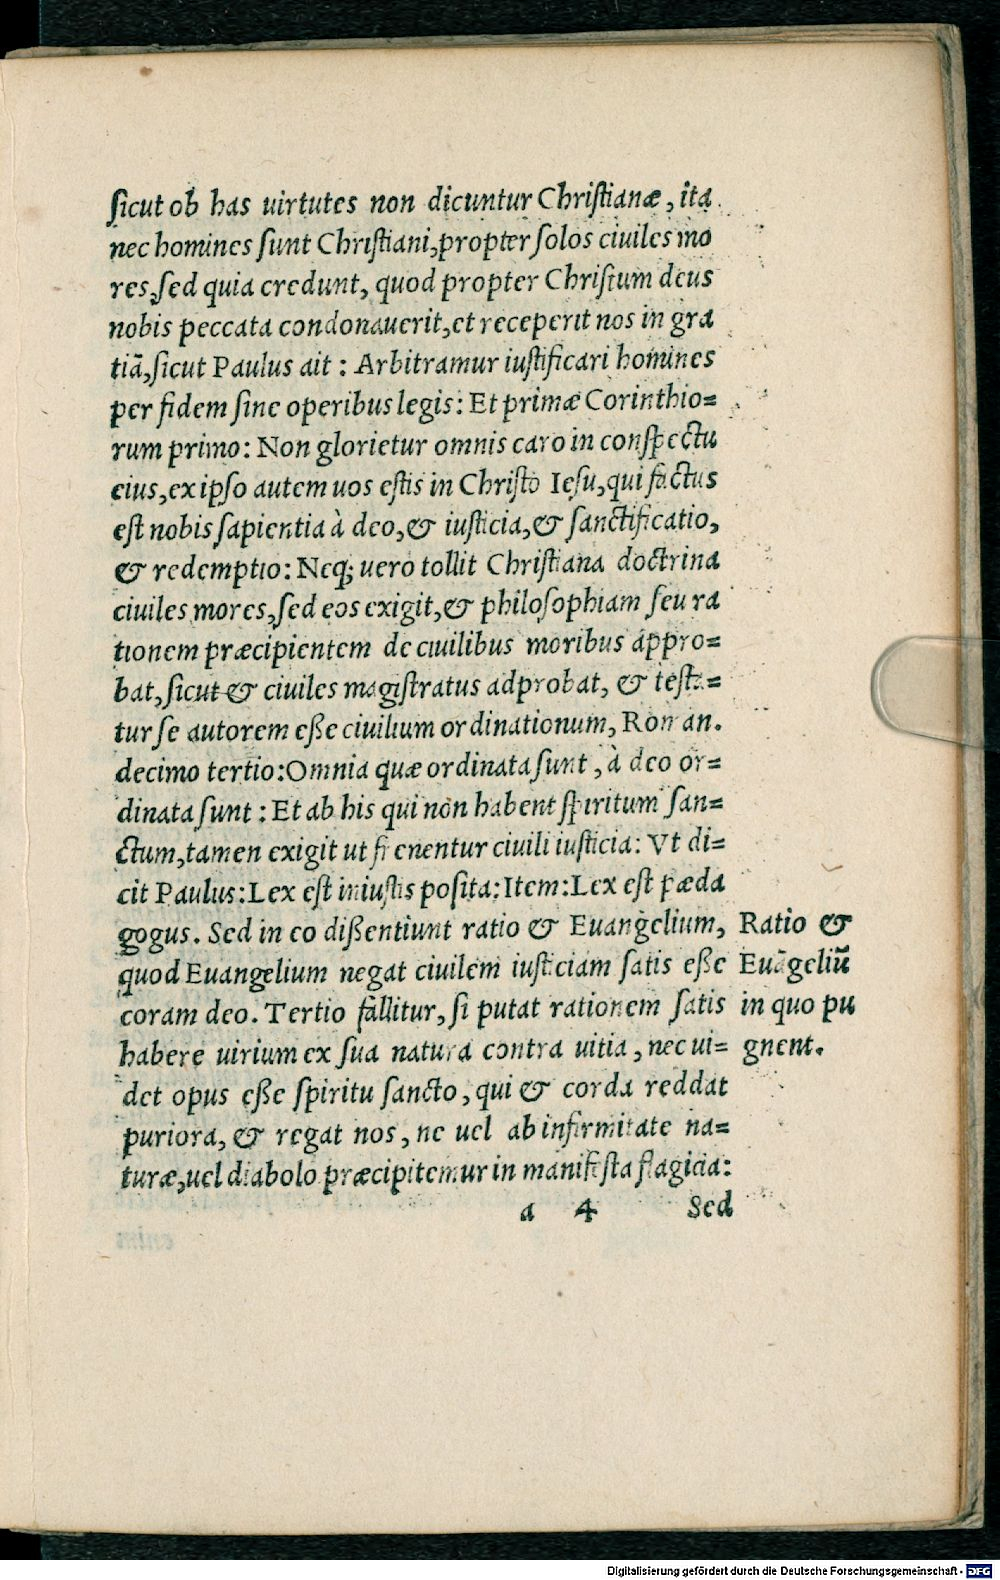 sicut ob has uirtutes non dicuntur Christianæ, ita
nec homines sunt Christiani, propter solos ciuiles mo
res, sed quia credunt, quod propter Christum deus
nobis peccata condonauerit, et receperit nos in gra
tiã, sicut Paulus ait: Arbitramur iustificari homines
per fidem sine operibus legis: Et primæ Corinthio=
rum primo: Non glorietur omnis caro in conspectu
eius, ex ipso autem uos estis in Christo Iesu, qui factus
est nobis sapientia à deo, & iusticia, & sanctificatio,
& redemptio: Neq; uero tollit Christiana doctrina
ciuiles mores, sed eos exigit, & philosophiam seu ra
tionem præcipientem de ciuilibus moribus appro=
bat, sicut & ciuiles magistratus adprobat, & testa=
tur se autorem eße ciuilium ordinationum, Roman.
decimo tertio: Omnia quæ ordinata sunt, à deo or=
dinata sunt: Et ab his qui non habent spiritum san=
ctum, tamen exigit ut frenentur ciuili iusticia: Vt di=
cit Paulus: Lex est iniustis posita: Item: Lex est pæda
gogus. Sed in eo dißentiunt ratio & Euangelium,
quod Euangelium negat ciuilem iusticiam satis eße
coram deo. Tertio fallitur, si putat rationem satis
habere uirium ex sua natura contra uitia, nec ui=
det opus eße spiritu sancto, qui & corda reddat
puriora, & regat nos, ne uel ab infirmitate na=
turæ, uel diabolo præcipitemur in manifesta flagicia:
Ratio &
Euãgeliũ
in quo pu
gnent.
a 4 Sed
Digitalisierung gefördert durch die Deutsche Forschungsgemeinschaft - DFG